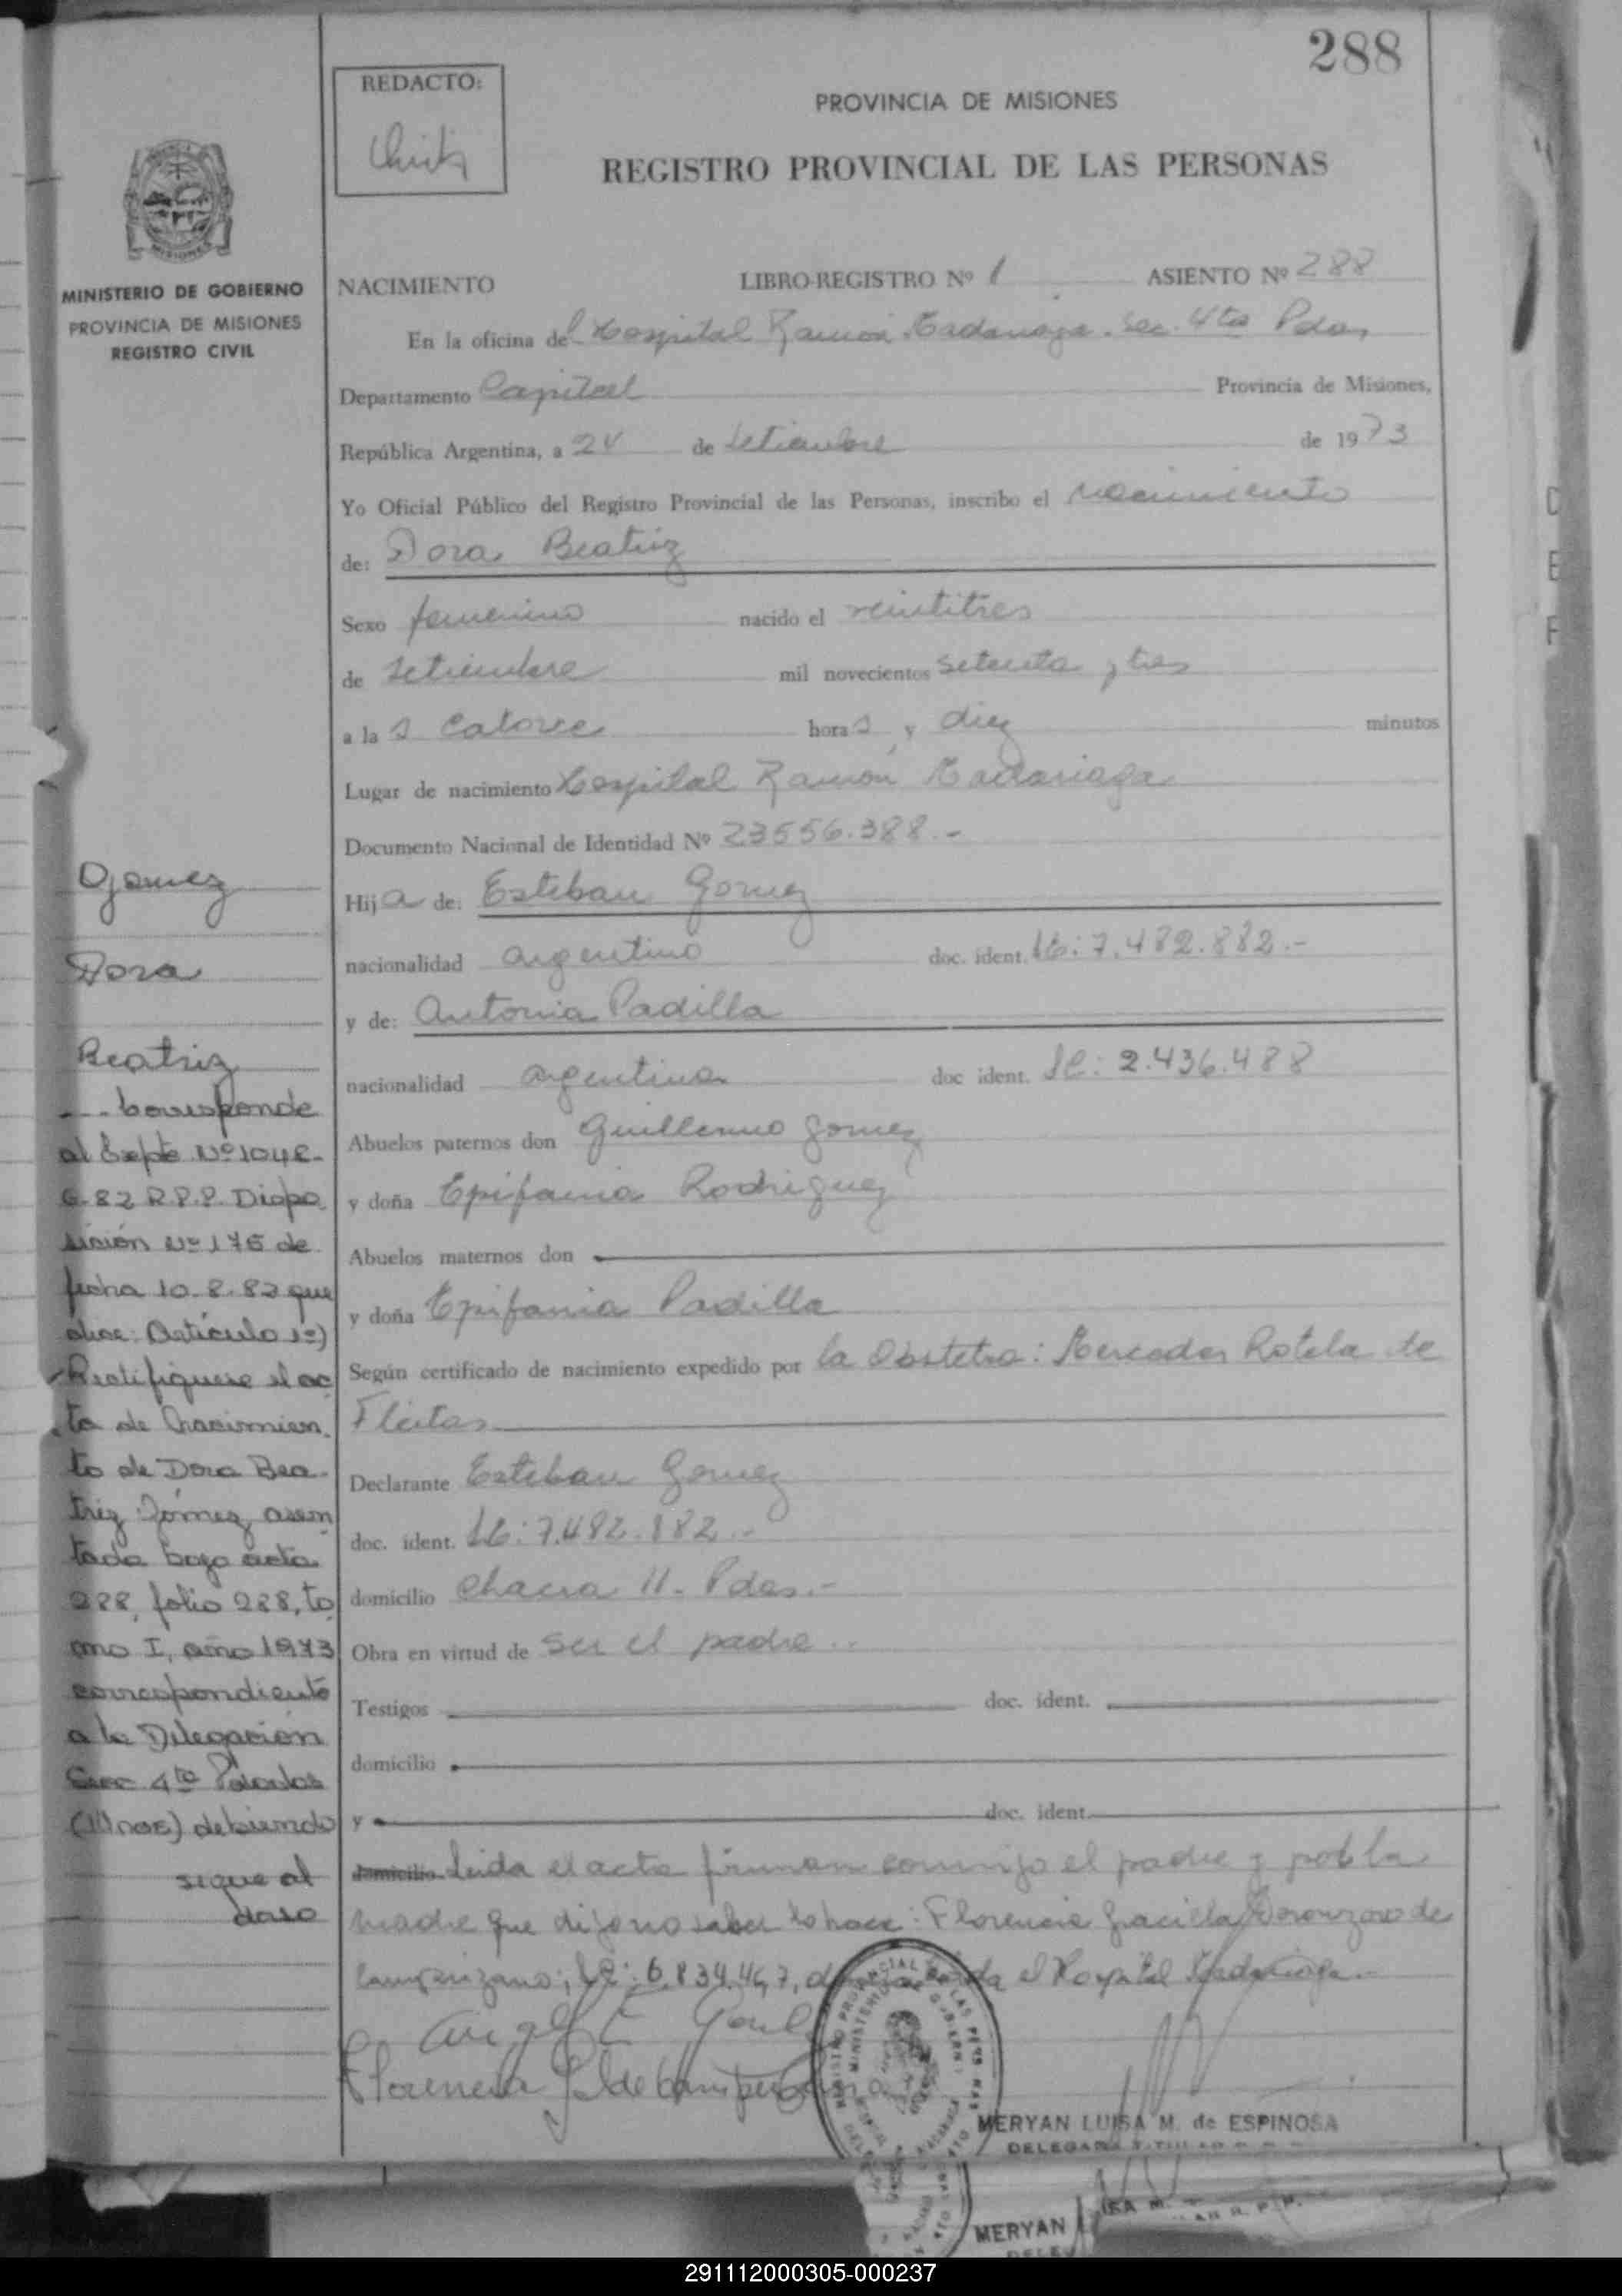 288
REDACTO:
PROVINCIA DE MISIONES
REGISTRO PROVINCIAL DE LAS PERSONAS
MINISTERIO DE GOBIERNO
PROVINCIA DE MISIONES
REGISTRO CIVIL
NACIMIENTO LIBRO-REGISTRO Nº 1 ASIENTO Nº 288
En la oficina del Hospital Ramón Madariaga. Sec. 4ta Pdas,
Departamento Capital Provincia de Misiones,
República Argentina, a 24 de Setiembre de 1973
Yo Oficial Público del Registro Provincial de las Personas, inscribo el nacimiento
de: Dora Beatriz
Sexo femenino nacido el veintitres
de setiembre mil novecientos setenta y tres
a la s catorce hora s y diez minutos
Lugar de nacimiento Hospital Ramón Madariaga
Documento Nacional de Identidad Nº 23556.388.-
Hija de: Esteban Gomez
nacionalidad argentino doc. ident. LE: 7.482.882.-
y de: Antonia Padilla
nacionalidad argentina doc ident. LC: 2.436.488
Abuelos paternos don Guillermo Gomez
y doña Epifania Rodriguez
Abuelos maternos don
y doña Epifania Padilla
Según certificado de nacimiento expedido por la Obstetra: Mercedes Rotela de
Fleitas
Declarante Esteban Gomez
doc. ident. LE: 7.482.882.-
domicilio Chacra 11. Pdas.-
Obra en virtud de ser el padre..
Testigos doc. ident.
domicilio
y doc. ident.
domicilio Leida el acta firman conmigo el padre y por la
madre que dijo no saber lo hace: Florencia Graciela de
LC: 6.834.467, el Hospital Madariaga.-
Gomez
Dora
Beatriz
--Corresponde
al Expte Nº 1048-
G-82 R.P.P. Dispo
sición Nº 175 de
fecha 10.8.82 que
dice: Artículo 1º)
Rectifiquese el ac
ta de Nacimien.
to de Dora Bea-
triz Gómez, asen
tada bajo acta
288, folio 288, to
mo I, año 1973
correspondiente
a la Delegación
Secc 4ta Posadas
(Mnes) debiendo
sigue al
dorso
Florencia
MERYAN LUISA M. de ESPINOSA
MERYAN
291112000305-000237